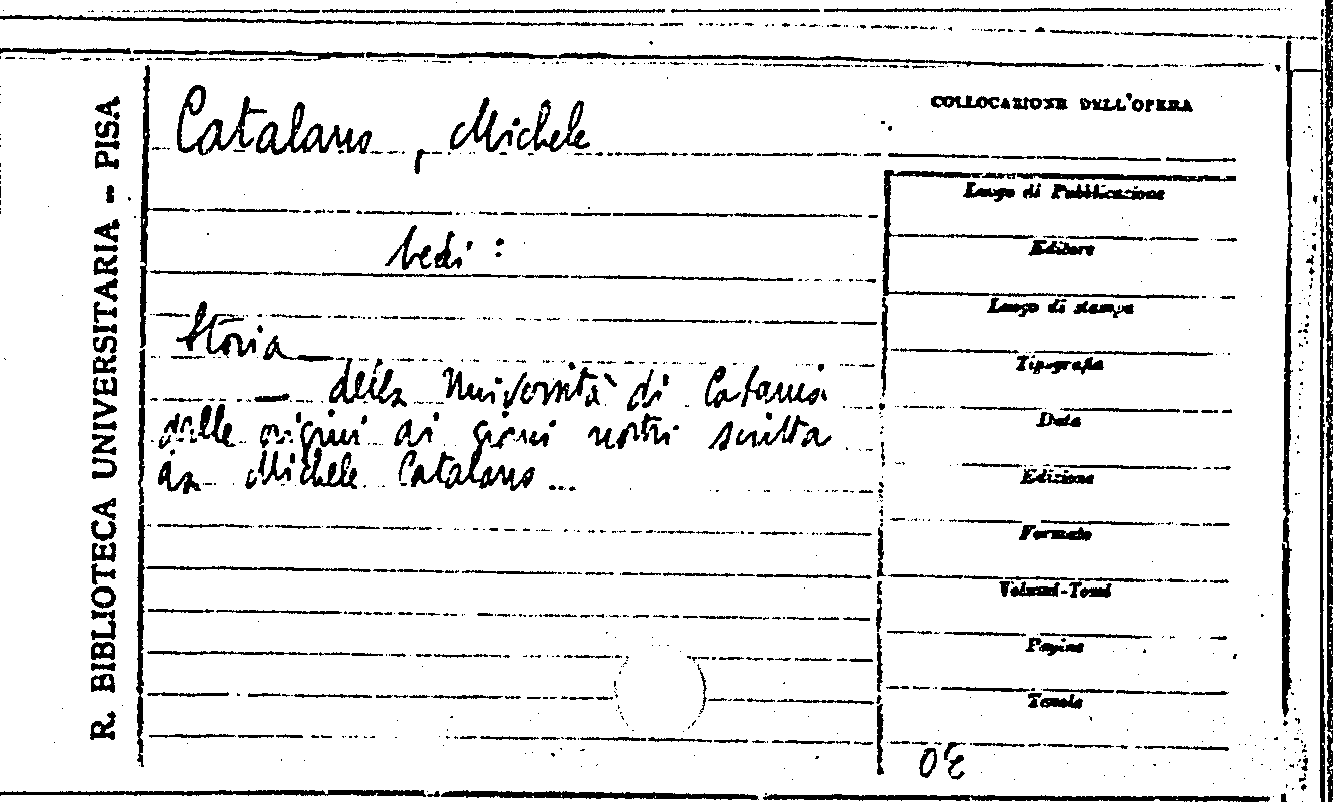 R. BIBLIOTECA UNIVERSITARIA - PISA
Catalano, Michele
Vedi :
Storia —
— della Università di Catania
dalle origini ai giorni nostri scritta
da Michele Catalano ...
COLLOCAZIONE DELL'OPERA
Luogo di Pubblicazione
Editore
Luogo di stampa
Tipografia
Data
Edizione
Formato
Volumi-Tomi
Pagine
Tavole